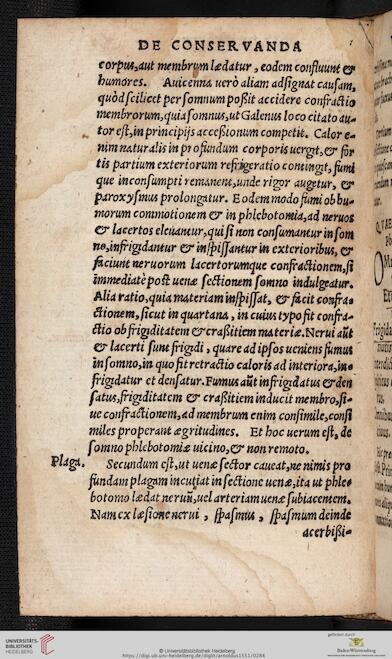 DE CONSERVANDA
corpus, aut membrum lædatur, eodem confluunt &
humores. Auicenna uerò aliam adsignat causam,
quòd scilicet per somnum possit accidere confractio
membrorum, quia somnus, ut Galenus loco citato au-
tor est, in principijs accessionum competit. Calor e-
nim naturalis in profundum corporis uergit, & for
tis partium exteriorum refrigeratio contingit, fumi
que inconsumpti remanent, unde rigor augetur, &
paroxysmus prolongatur. Eodem modo fumi ob hu-
morum commotionem & in phlebotomia, ad neruos
& lacertos eleuantur, qui si non consumantur in som
no, infrigidantur & inspissantur in exterioribus, &
faciunt neruorum lacertorumque confractionem, si
immediatè post uenæ sectionem somno indulgeatur.
Alia ratio, quia materiam inspissat, & facit confra-
ctionem, sicut in quartana, in cuius typo fit confra-
ctio ob frigiditatem & crassitiem materiæ. Nerui aũt
& lacerti sunt frigidi, quare ad ipsos ueniens fumus
in somno, in quo fit retractio caloris ad interiora, in-
frigidatur et densatur. Fumus aũt infrigidatus & den
satus, frigiditatem & crassitiem inducit membro, si-
ue confractionem, ad membrum enim consimile, consi
miles properant ægritudines. Et hoc uerum est, de
somno phlebotomiæ uicino, & non remoto.
Plaga. Secundum est, ut uenæ sector caueat, ne nimis pro
fundam plagam incutiat in sectione uenæ, ita ut phle-
botomo lædat neruũ, uel arteriam uenæ subiacentem.
Nam ex læsione nerui, spasmus, spasmum deinde
acerbissi-
UNIVERSITÄTS-
BIBLIOTHEK
HEIDELBERG
© Universitätsbibliothek Heidelberg
https://digi.ub.uni-heidelberg.de/diglit/arnoldus1551/0284
gefördert durch
Baden-Württemberg